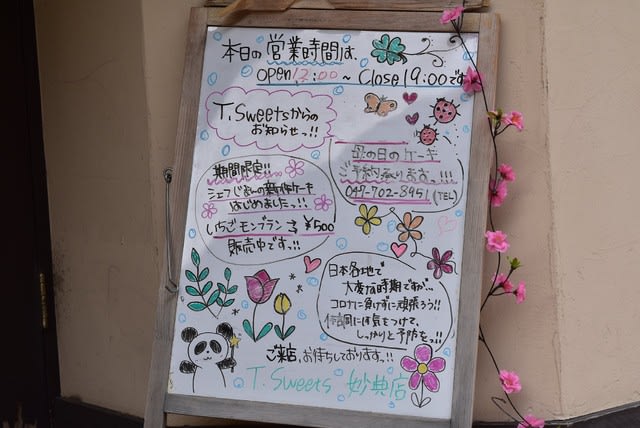 本日の営業時間は、
open 12:00～Close 19:00です
T.Sweetsからの
お知らせっ!!
母の日のケーキ
ご予約承ります っ!!!
047-702-8951 (TEL)
期間限定!!
シェフじまんの新作ケーキ
はじめましたっ!!
いちごモンブラン ¥500
販売中です!!
日本各地で
大変な時期ですが…
コロナに負けずに頑張ろう!!
体調には気をつけて、
しっかりと予防をっ!!
ご来店、お待ちしておりますっ!!
T.Sweets 妙典店